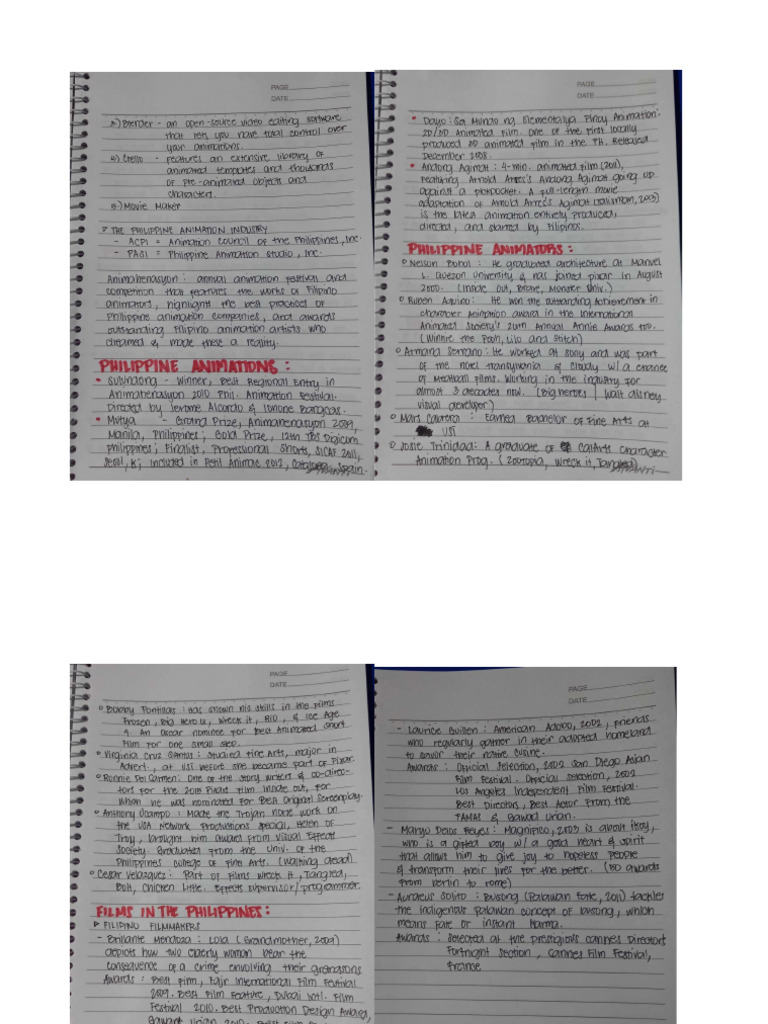 PAGE
DATE
a) Blender - an open-source video editing software
that lets you have total control over
your animations.
- Features an extensive library of
animated templates and thousands
of pre-animated objects and
characters.
Movie Maker
THE PHILIPPINE ANIMATION INDUSTRY
- ACPI = Animation Council of the Philippines, Inc.
- PASI = Philippine Animation Studio, Inc.
Animahenasyon: annual animation festival and
competition that features the works of Filipino
animators, highlights the best practices of
Philippine animation companies, and awards
outstanding Filipino animation artists who
dreamed & made these a reality.
PHILIPPINE ANIMATIONS:
- Winner, Best Regional Entry in
Animahenasyon 2010 Phil. Animation Festival.
Directed by Jerome Alcordo &
Mutya - Grand Prize, Animahenasyon 2009,
Manila, Philippines; Gold Prize, 12th Digicon
Philippines; Finalist, Professional Shorts, SICAF 2011,
Seoul, K; included in Petit Animac 2012, Spain.
PAGE
DATE
Dayo: Sa Mundo ng Elementalya Pinoy Animation:
2D/3D animated film. One of the first locally
produced 3D animated film in the PH. Released
December 2008.
Andong Agimat: 4-min. animated film (2011),
Featuring Arnold Arre's Andong Agimat going up
against a A full-length movie
adaptation of Arnold Arre's Agimat
is the latest animation entirely produced,
directed, and starred by Filipinos.
PHILIPPINE ANIMATORS:
Nelson Bohol: He graduated architecture at Manuel
L. Quezon University & has joined pixar in August
2000. (Inside Out, Brave, Monster Univ.)
Ruben Aquino: He won the outstanding Achievement in
character Animation award in the International
Animated Society's Annual Annie Awards too.
(Winnie the Pooh, Lilo and Stitch)
Armand Serrano: He worked at Sony and was part
of the Hotel Transylvania & Cloudy w/ a chance
of Meatball films. Working in the industry for
almost 3 decades now. (Big heroes / Walt disney
visual developer)
Mars Cabrera: Earned Bachelor of Fine Arts at
UST
Josie Trinidad: A graduate of CalArts Character
Animation Prog. (Zootopia, Wreck it, Tangled)
PAGE
DATE
Bobby Pontillas: Has shown his skills in the films
Frozen, Big Hero 6, Wreck it, RIO, & Ice Age
4. An Oscar nominee for Best Animated Short
Film for one small step.
Virginia Cruz Santos: Studied Fine Arts, major in
Advert., at UST before she became part of Pixar.
Ronnie Del Carmen: One of the story writers & co-direc-
tors for the Pixar film Inside Out, for
when he was nominated for Best Original Screenplay.
Anthony Ocampo: Made the Trojan horse work on
the USA Network Productions special, Helen of
Troy, brought him award from Visual Effects
Society. Graduated from the Univ. of the
Philippines college of Fine Arts. (Walking dead)
Cesar Velazquez: Part of films wreck it, Tangled,
Bolt, Chicken Little. Effects supervisor/programmer.
FILMS IN THE PHILIPPINES:
FILIPINO FILMMAKERS
- Brillante Mendoza: Lola (Grandmother, 2009)
depicts how two elderly woman bear the
consequence of a crime envolving their grandsons
Awards: Best film, Fajr International Film Festival
2009. Best Film Feature, Dubai Intl. Film
Festival 2010. Best Production Design Award,
Gawad Urian 2010.
PAGE
DATE
- Laurice Guillen: American Adobo, 2002, Friends
who regularly gather in their adopted homeland
to savor their native cuisine.
Awards: Official Selection, 2002 San Diego Asian
Film Festival. Official Selection, 2002
Los Angeles Independent Film Festival.
Best Directors, Best Actor From the
FAMAS & Gawad Urian.
- Maryo Delos Reyes: Magnifico, 2003 is about
who is a gifted boy w/ a gold heart & spirit
that allows him to give joy to hopeless people
& transform their lives for the better. awards
from berlin to rome)
- Auraeus Solito: Busong (Palawan Fate, 2011) tackles
the indigenous Palawan concept of busong, which
means fate or instant karma.
Awards: Selected at the prestigious Cannes Directors
Fortnight Station, Cannes Film Festival,
France